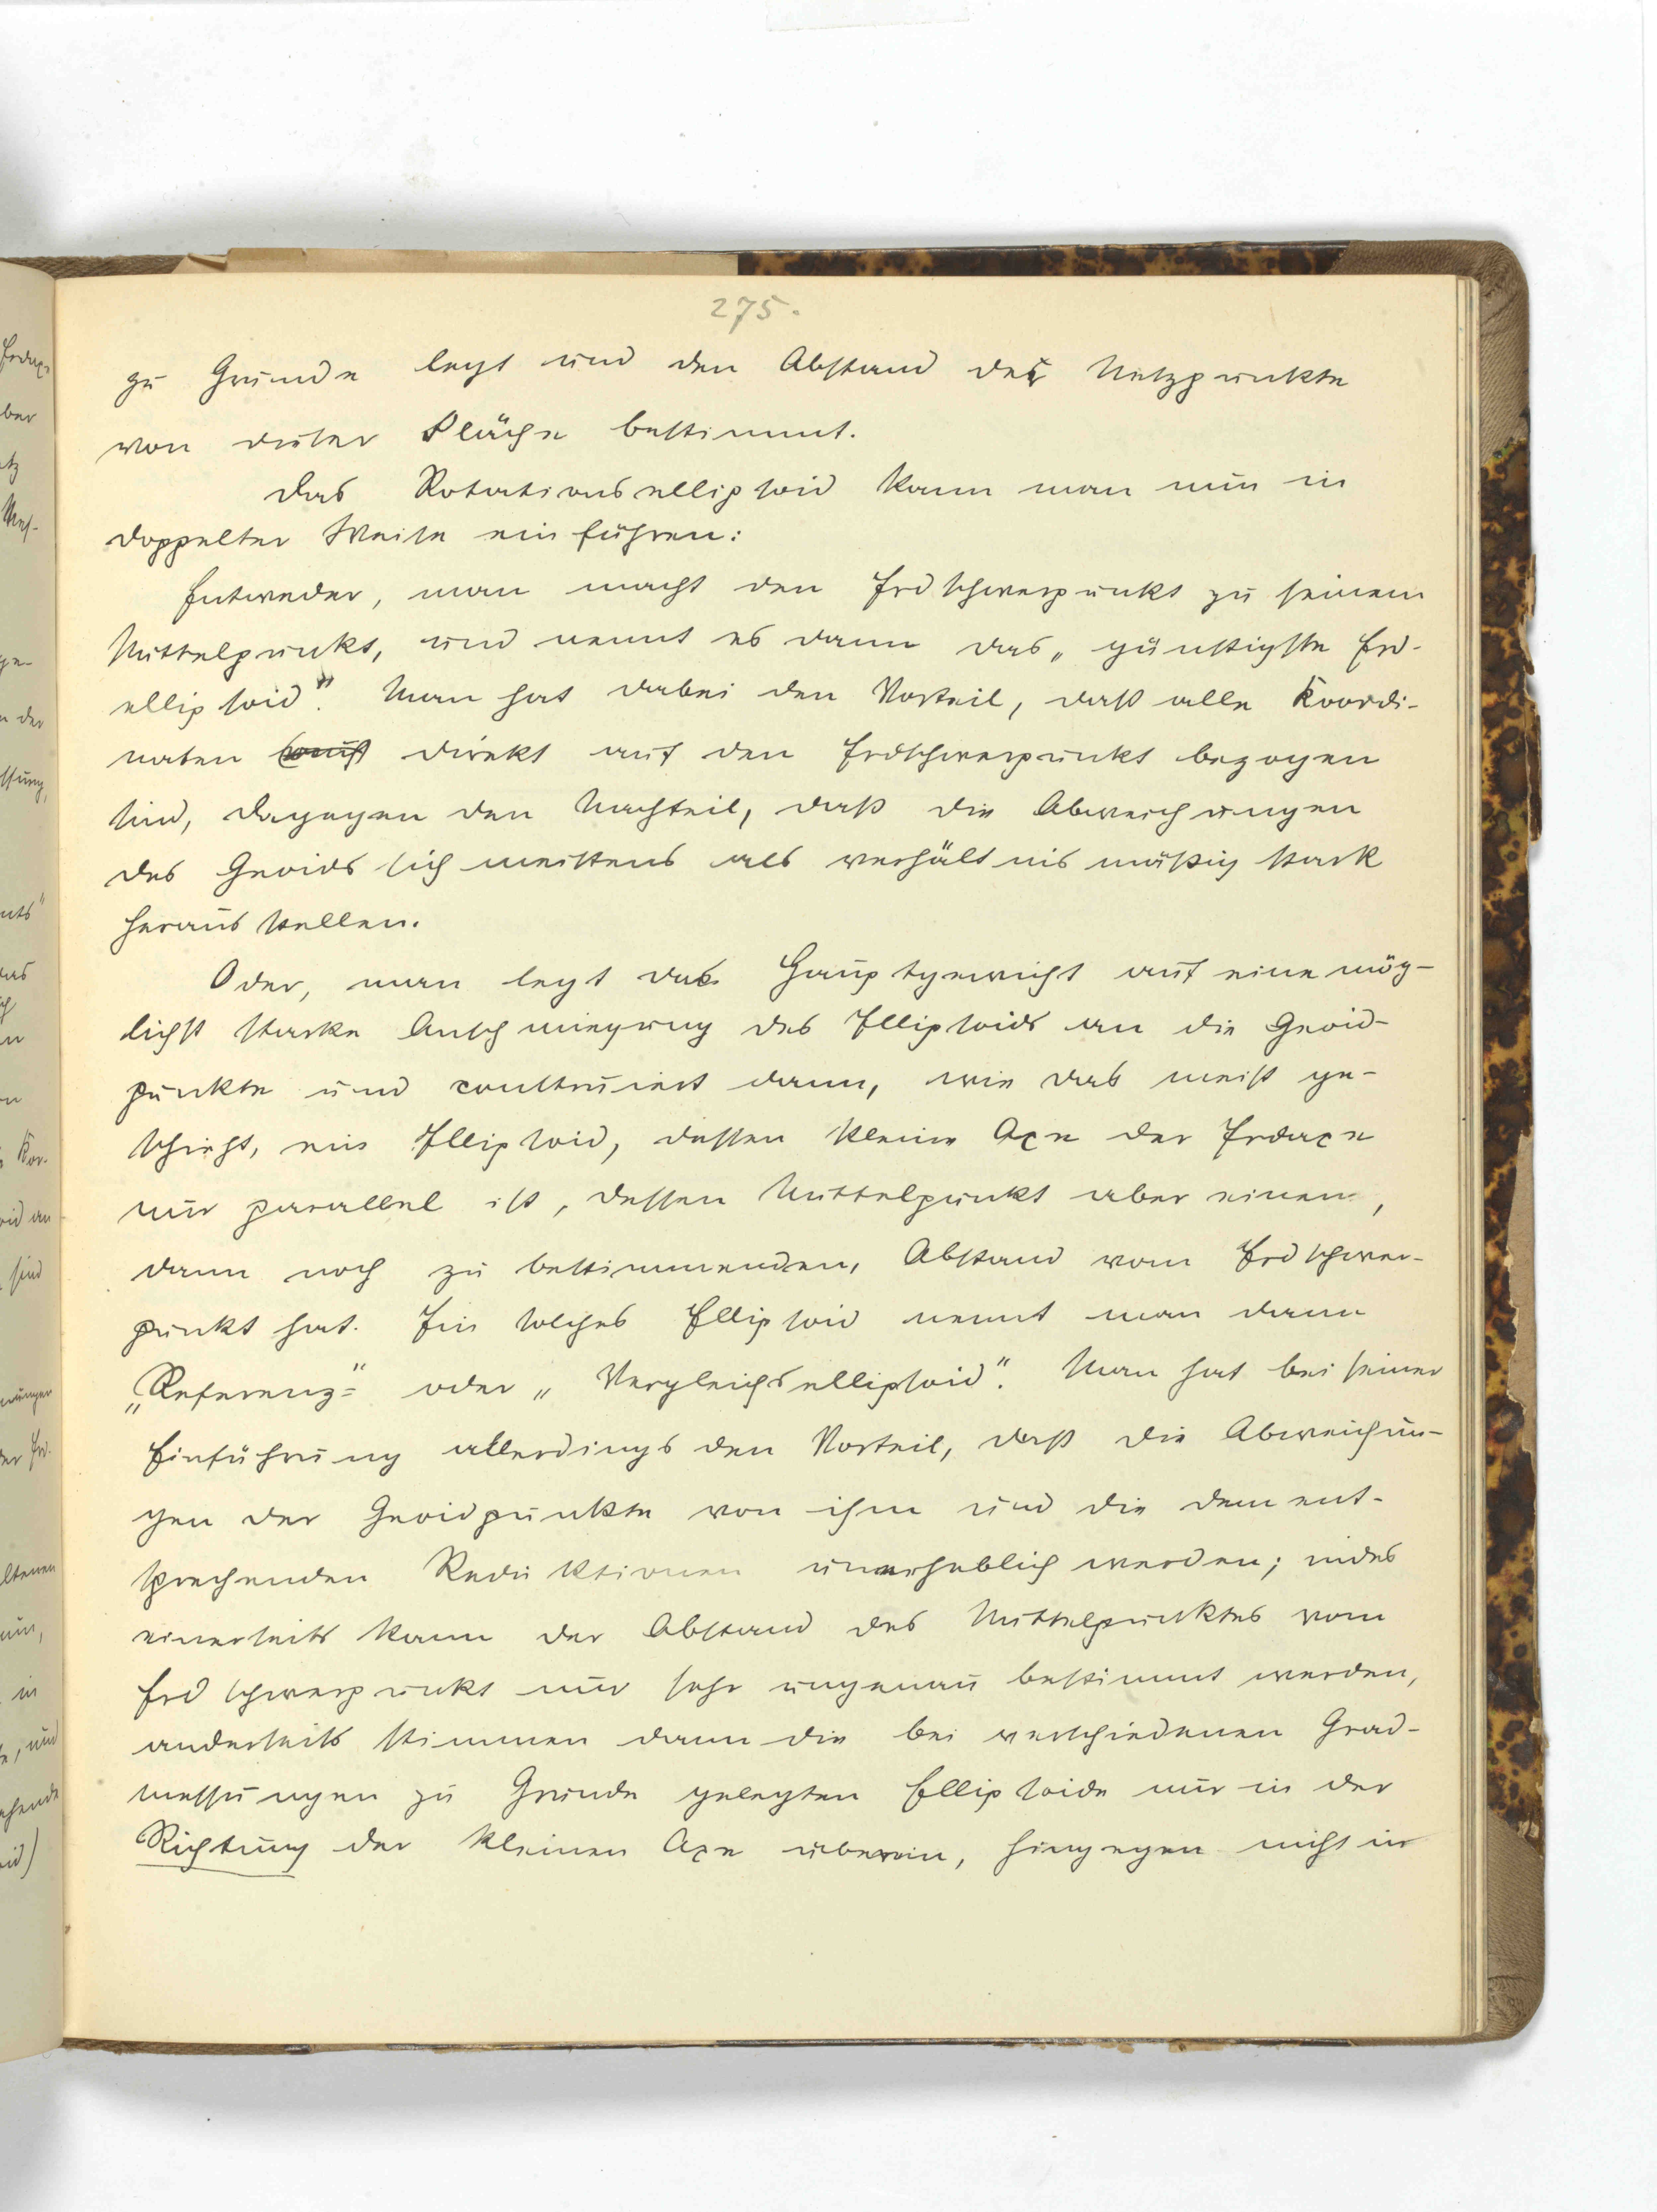 275.
zu Grunde legt und den Abstand der Netzpunkte
von dieser Fläche bestimmt.
Das Rotationsellipsoid kann man nun in
doppelter Weise einführen:
Entweder, man macht den Erdschwerpunkt zu seinem
Mittelpunkt, und nennt es dann das „günstigste Erd-
ellipsoid“. Man hat dabei den Vorteil, daß alle Koordi-
naten direkt auf den Erdschwerpunkt bezogen
sind, dagegen den Nachteil, daß die Abweichungen
des Geoids sich meistens als verhältnismäßig stark
herausstellen.
Oder, man legt das Hauptgewicht auf eine mög-
lichst starke Anschmiegung des Ellipsoids an die Geoid-
punkte und construiert dann, wie das meist ge-
schieht, ein Ellipsoid, dessen kleine Axe der Erdaxe
nur parallel ist, dessen Mittelpunkt aber einen,
dann noch zu bestimmenden, Abstand vom Erdschwer-
punkt hat. Ein solches Ellipsoid nennt man dann
„Referenz-“ oder „Vergleichsellipsoid“. Man hat bei seiner
Einführung allerdings den Vorteil, daß die Abweichun-
gen der Geoidpunkte von ihm und die dement-
sprechenden Reduktionen unerheblich werden; indes
einerseits kann der Abstand des Mittelpunktes vom
Erdschwerpunkt nur sehr ungenau bestimmt werden,
anderseits stimmen dann die bei verschiedenen Grad-
messungen zu Grunde gelegten Ellipsoide nur in der
Richtung der kleinen Axe überein, hingegen nicht in